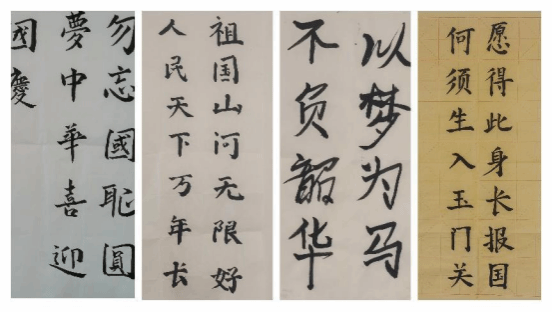 勿忘國恥圓
夢中華喜迎
國慶
祖国山河无限好
人民天下万年长
以梦为马
不负韶华
愿得此身长报国
何须生入玉门关